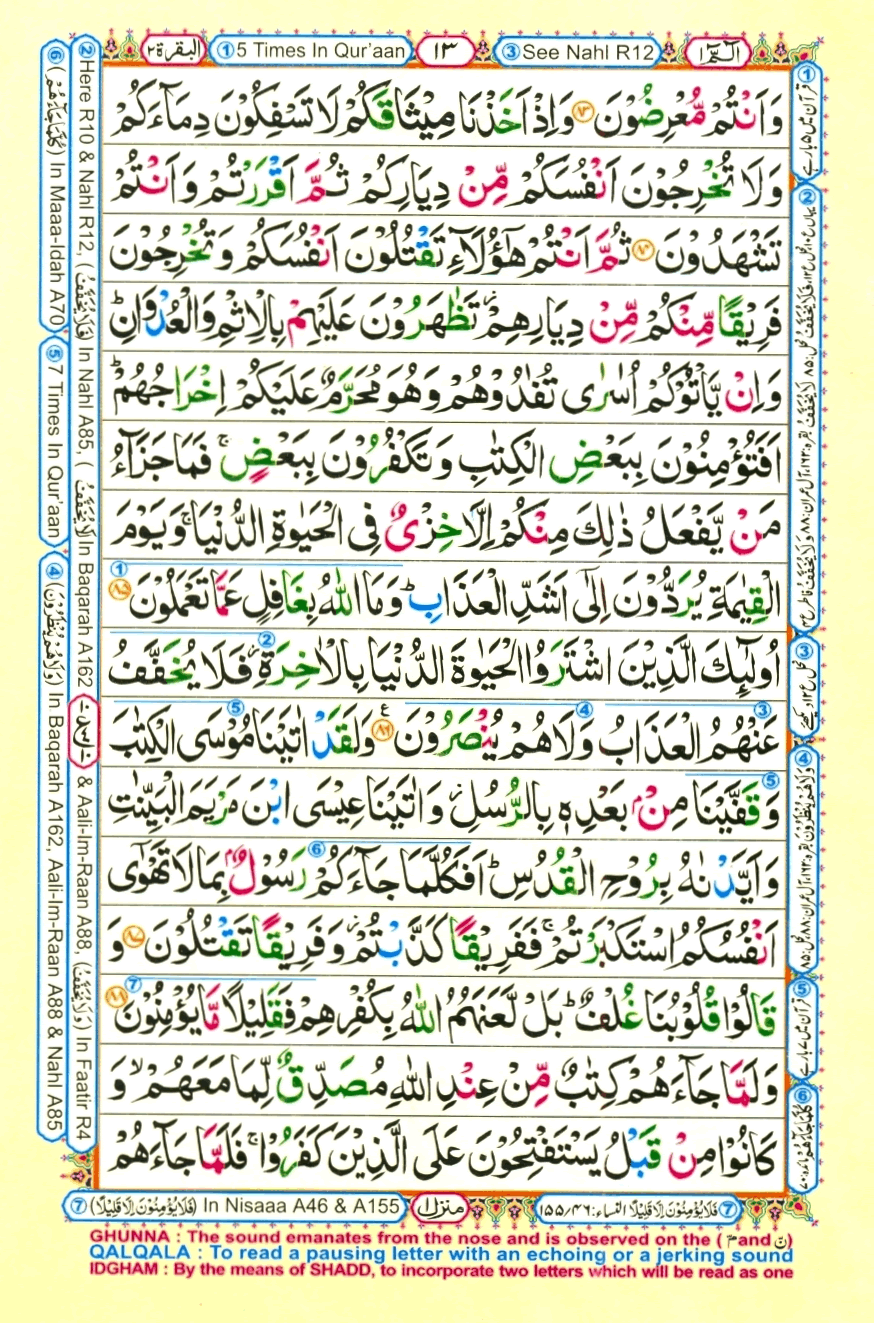 البقرة ٢
① 5 Times In Qur'aan
١٣
③ See Nahl R12
الٓمّٓ ١
وَاَنْتُمْ مُّعْرِضُوْنَ ﴿۸۳﴾ وَاِذْ اَخَذْنَا مِيْثَاقَكُمْ لَا تَسْفِكُوْنَ دِمَآءَكُمْ
وَلَا تُخْرِجُوْنَ اَنْفُسَكُمْ مِّنْ دِيَارِكُمْ ثُمَّ اَقْرَرْتُمْ وَاَنْتُمْ
تَشْهَدُوْنَ ﴿۸۴﴾ ثُمَّ اَنْتُمْ هٰٓؤُلَآءِ تَقْتُلُوْنَ اَنْفُسَكُمْ وَتُخْرِجُوْنَ
فَرِيْقًا مِّنْكُمْ مِّنْ دِيَارِهِمْ ؗ تَظٰهَرُوْنَ عَلَيْهِمْ بِالْاِثْمِ وَالْعُدْوَانِ ؕ
وَاِنْ يَّاْتُوْكُمْ اُسٰرٰى تُفٰدُوْهُمْ وَهُوَ مُحَرَّمٌ عَلَيْكُمْ اِخْرَاجُهُمْ ؕ
اَفَتُؤْمِنُوْنَ بِبَعْضِ الْكِتٰبِ وَتَكْفُرُوْنَ بِبَعْضٍ ۚ فَمَا جَزَآءُ
مَنْ يَّفْعَلُ ذٰلِكَ مِنْكُمْ اِلَّا خِزْىٌ فِى الْحَيٰوةِ الدُّنْيَا ۚ وَيَوْمَ
الْقِيٰمَةِ يُرَدُّوْنَ اِلٰٓى اَشَدِّ الْعَذَابِ ؕ وَمَا اللّٰهُ بِغَافِلٍ عَمَّا تَعْمَلُوْنَ ﴿۸۵﴾
اُولٰٓئِكَ الَّذِيْنَ اشْتَرَوُا الْحَيٰوةَ الدُّنْيَا بِالْاٰخِرَةِ ؗ فَلَا يُخَفَّفُ
عَنْهُمُ الْعَذَابُ وَلَا هُمْ يُنْصَرُوْنَ ﴿۸۶﴾ ع وَلَقَدْ اٰتَيْنَا مُوْسَى الْكِتٰبَ
وَقَفَّيْنَا مِنْۢ بَعْدِهٖ بِالرُّسُلِ ؗ وَاٰتَيْنَا عِيْسَى ابْنَ مَرْيَمَ الْبَيِّنٰتِ
وَاَيَّدْنٰهُ بِرُوْحِ الْقُدُسِ ؕ اَفَكُلَّمَا جَآءَكُمْ رَسُوْلٌۢ بِمَا لَا تَهْوٰٓى
اَنْفُسُكُمُ اسْتَكْبَرْتُمْ ۚ فَفَرِيْقًا كَذَّبْتُمْ ؗ وَفَرِيْقًا تَقْتُلُوْنَ ﴿۸۷﴾ وَ
قَالُوْا قُلُوْبُنَا غُلْفٌ ؕ بَلْ لَّعَنَهُمُ اللّٰهُ بِكُفْرِهِمْ فَقَلِيْلًا مَّا يُؤْمِنُوْنَ ﴿۸۸﴾
وَلَمَّا جَآءَهُمْ كِتٰبٌ مِّنْ عِنْدِ اللّٰهِ مُصَدِّقٌ لِّمَا مَعَهُمْ ۙ وَ
كَانُوْا مِنْ قَبْلُ يَسْتَفْتِحُوْنَ عَلَى الَّذِيْنَ كَفَرُوْا ۚ فَلَمَّا جَآءَهُمْ
② Here R10 & Nahl R12, (فَلَا يُخَفَّفُ) In Nahl A85, (لَا يُخَفَّفُ) In Baqarah A162 & Aali-Im-Raan A88, (وَلَا يُخَفَّفُ) In Faatir R4
⑥ (كُلَّمَا جَآءَهُمْ) In Maaa-Idah A70
⑤ 7 Times In Qur'aan
④ (وَلَا هُمْ يُنْظَرُوْنَ) In Baqarah A162, Aali-Im-Raan A88 & Nahl A85
① قرآن میں ۵ بار ہے
⑤ قرآن میں ۷ بار ہے
⑦ (فَلَا يُؤْمِنُوْنَ اِلَّا قَلِيْلًا) In Nisaaa A46 & A155
منزل ١
⑦ فَلَا يُؤْمِنُوْنَ اِلَّا قَلِيْلًا النساء: ۴۶/۱۵۵
GHUNNA : The sound emanates from the nose and is observed on the ( مّ and نّ )
QALQALA : To read a pausing letter with an echoing or a jerking sound
IDGHAM : By the means of SHADD, to incorporate two letters which will be read as one